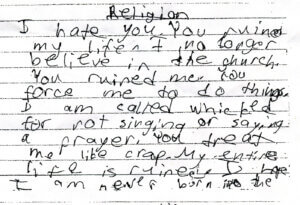 Religion
I hate you. You ruined
my life. I no longer
believe in the church.
You ruined me. You
force me to do things.
I am called whicked
for not singing or saying
a prayer. You treat
me like crap. My entire
life is ruined. I hope
I am never born into the